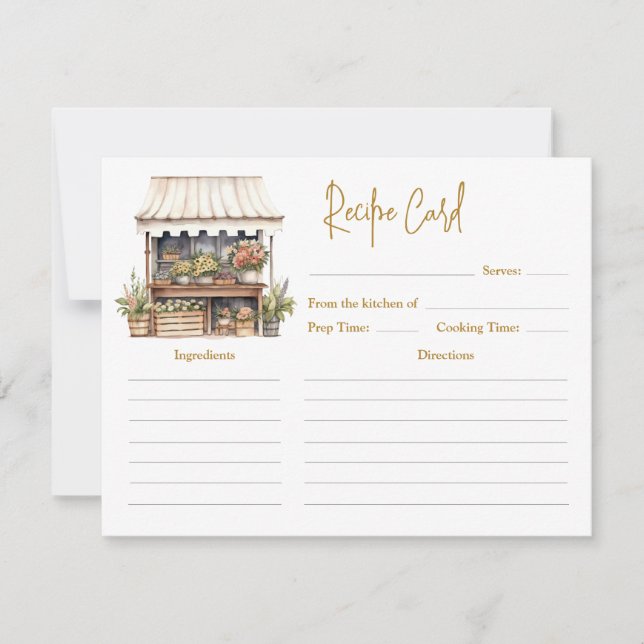 Recipe Card
Serves:
From the kitchen of
Prep Time: Cooking Time:
Ingredients Directions